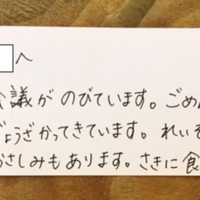 へ
議がのびています。ごめ
ょうざかってきています。れい
さしみもあります。さきに食